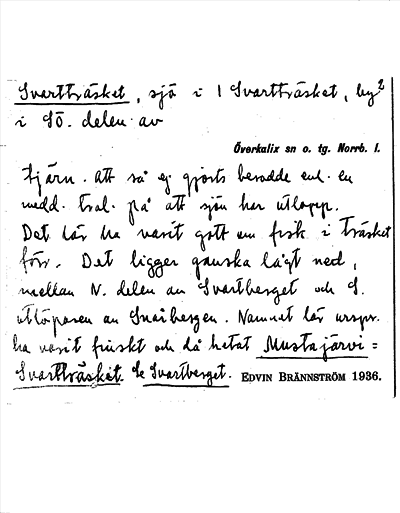 Svartträsket, sjö i 1 Svartträsket, by²
i SÖ. delen av
Överkalix sn o. tg. Norrb. l.
tjärn. Att så ej gjorts berodde enl. en
medd. trol. på att sjön har utlopp.
Det lär ha varit gott om fisk i träsket
förr. Det ligger ganska lågt ned,
mellan N. delen av Svartberget och S.
utlöparen av Snaibergen. Namnet lär urspr.
ha varit finskt och då hetat Mustajärvi =
Svartträsket. Se Svartberget. EDVIN BRÄNNSTRÖM 1936.